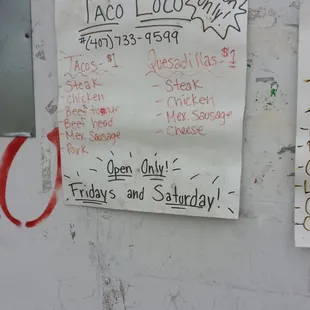 TACO LOCO
only!
#(407)-733-9599
Tacos - $1
Quesadillas - $1
Steak
- chicken
Beef tongue
Beef head
Mex. Sausage
- Pork
- Steak
- Chicken
- Mex. Sausage
- Cheese
Open Only!
Fridays and Saturday!